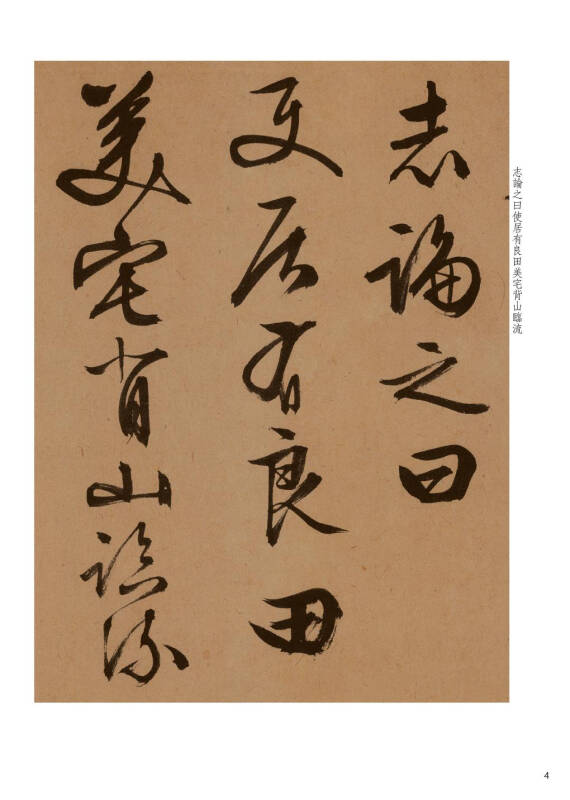 志論之曰
使居有良田
美宅背山臨流
志論之曰使居有良田美宅背山臨流
4